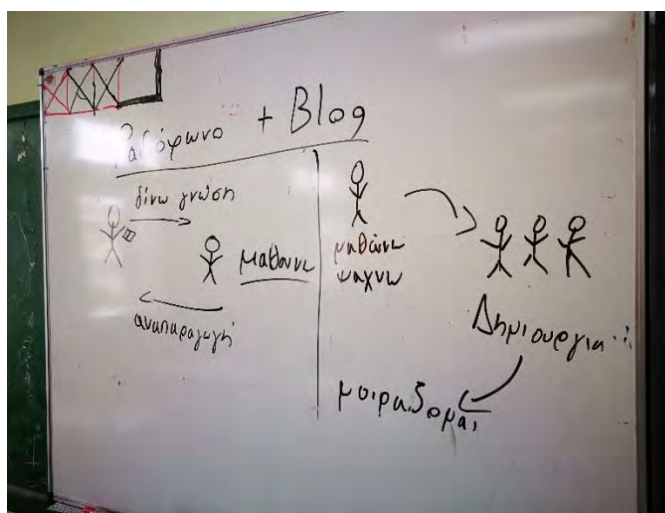 Ραδιόφωνο + Blog
δίνω γνώση
μαθαίνω
αναπαραγωγή
μαθαίνω
ψαχνω
Δημιουργια
μοιραζομαι